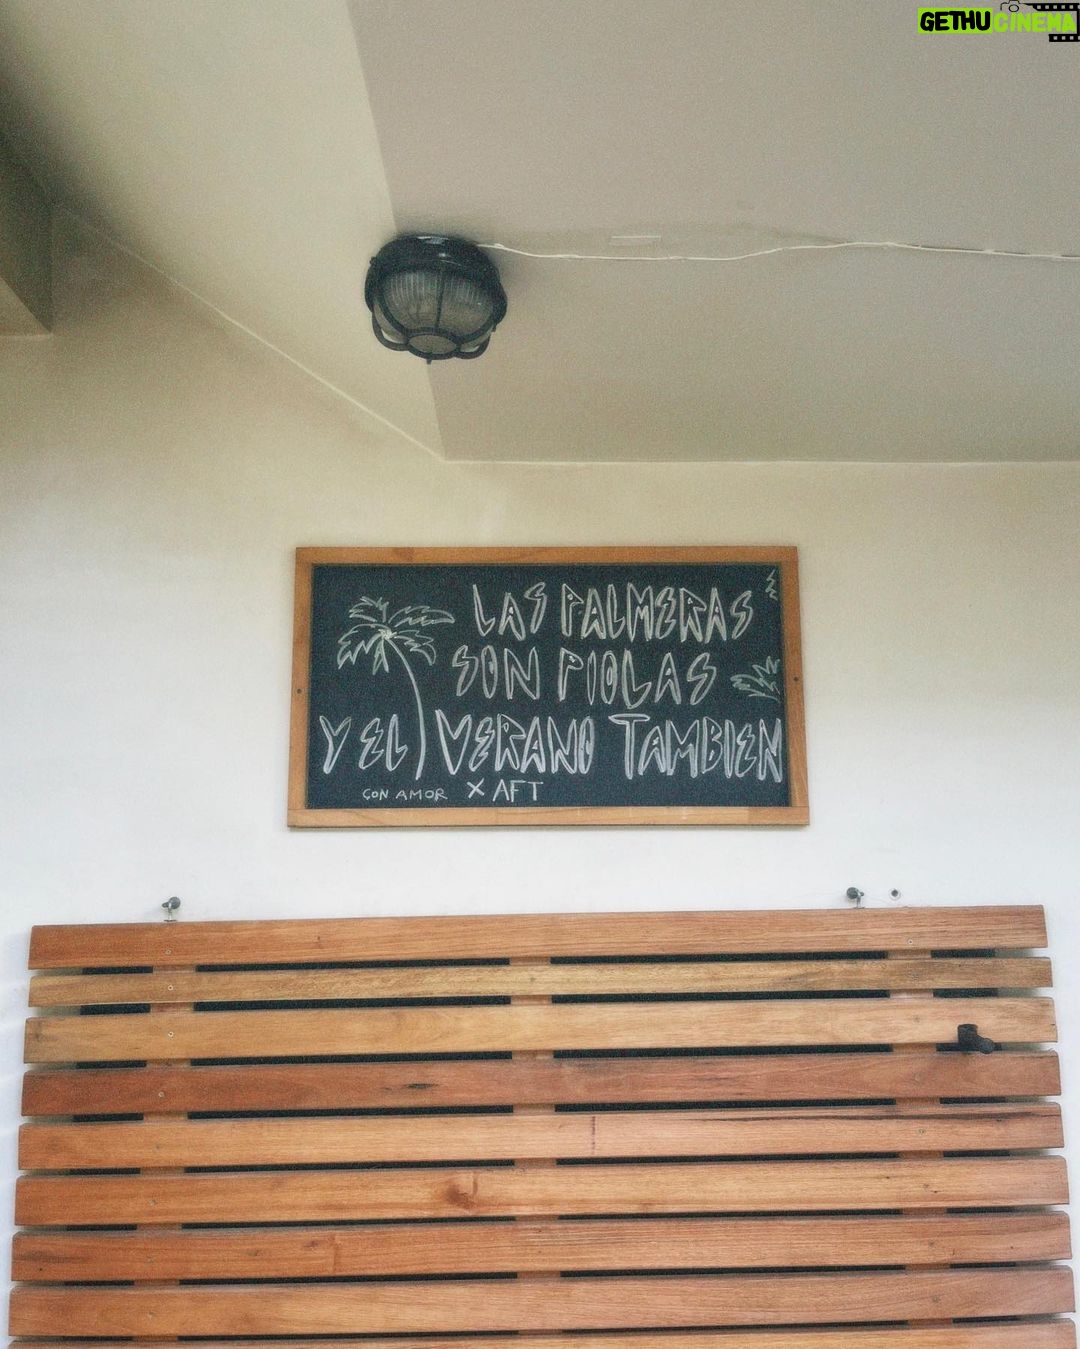 GETHUCINEMA
LAS PALMERAS
SON PIOLAS
Y EL VERANO TAMBIEN
CON AMOR X AFT